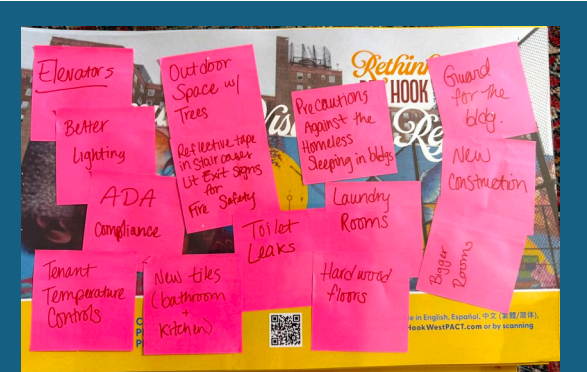 Elevators
Better
Lighting
ADA
Compliance
Tenant
Temperature
Controls
Outdoor
Space w/
Trees
Reflective tape
in stair cases
Lit Exit Signs
for
Fire Safety
New tiles
(bathroom
+
Kitchen)
Toilet
Leaks
Precautions
Against the
Homeless
Sleeping in bldgs
Laundry
Rooms
Hardwood
floors
Guard
for the
bldg.
New
Construction
Bigger
Rooms
Rethink
HOOK
Re
Vis
e in English, Español, 中文 (繁體/简体),
HookWestPACT.com or by scanning